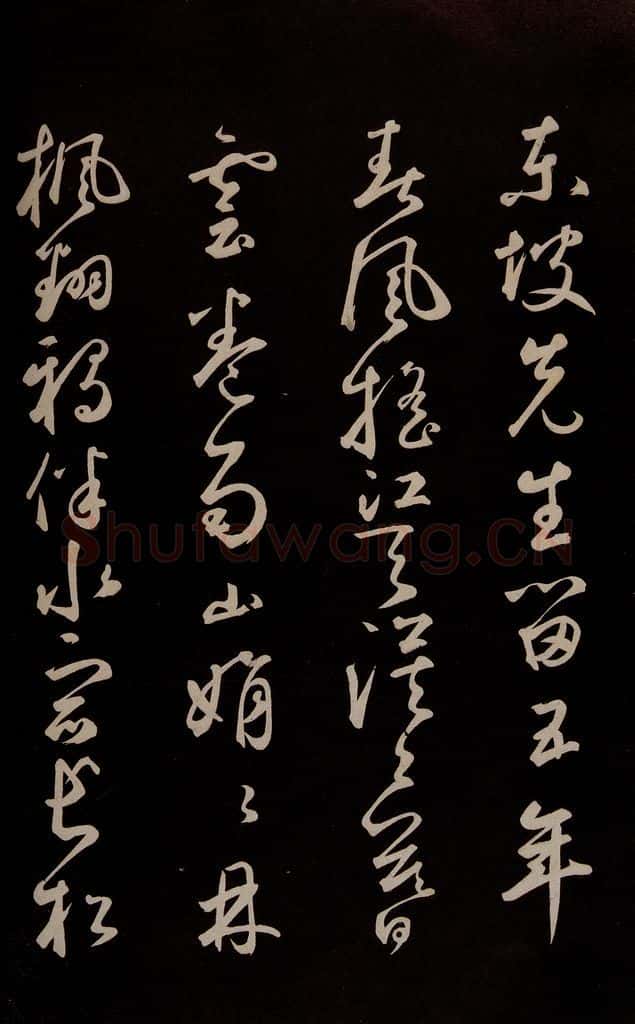 東坡先生留五年
春風摇江天漠々暮
雲卷雨山娟々丹
楓翻鴉伴水宿長松
Shufawang.CN